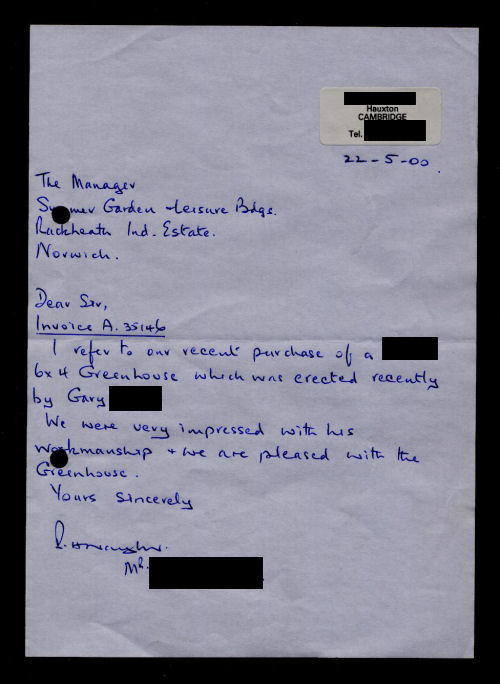 Hauxton
CAMBRIDGE
Tel.
22-5-00.
The Manager
Summer Garden + Leisure Bdgs.
Rackheath Ind. Estate.
Norwich.
Dear Sir,
Invoice A. 35146
I refer to our recent purchase of a
6x4 Greenhouse which was erected recently
by Gary
We were very impressed with his
workmanship + we are pleased with the
Greenhouse.
Yours Sincerely
Mr.